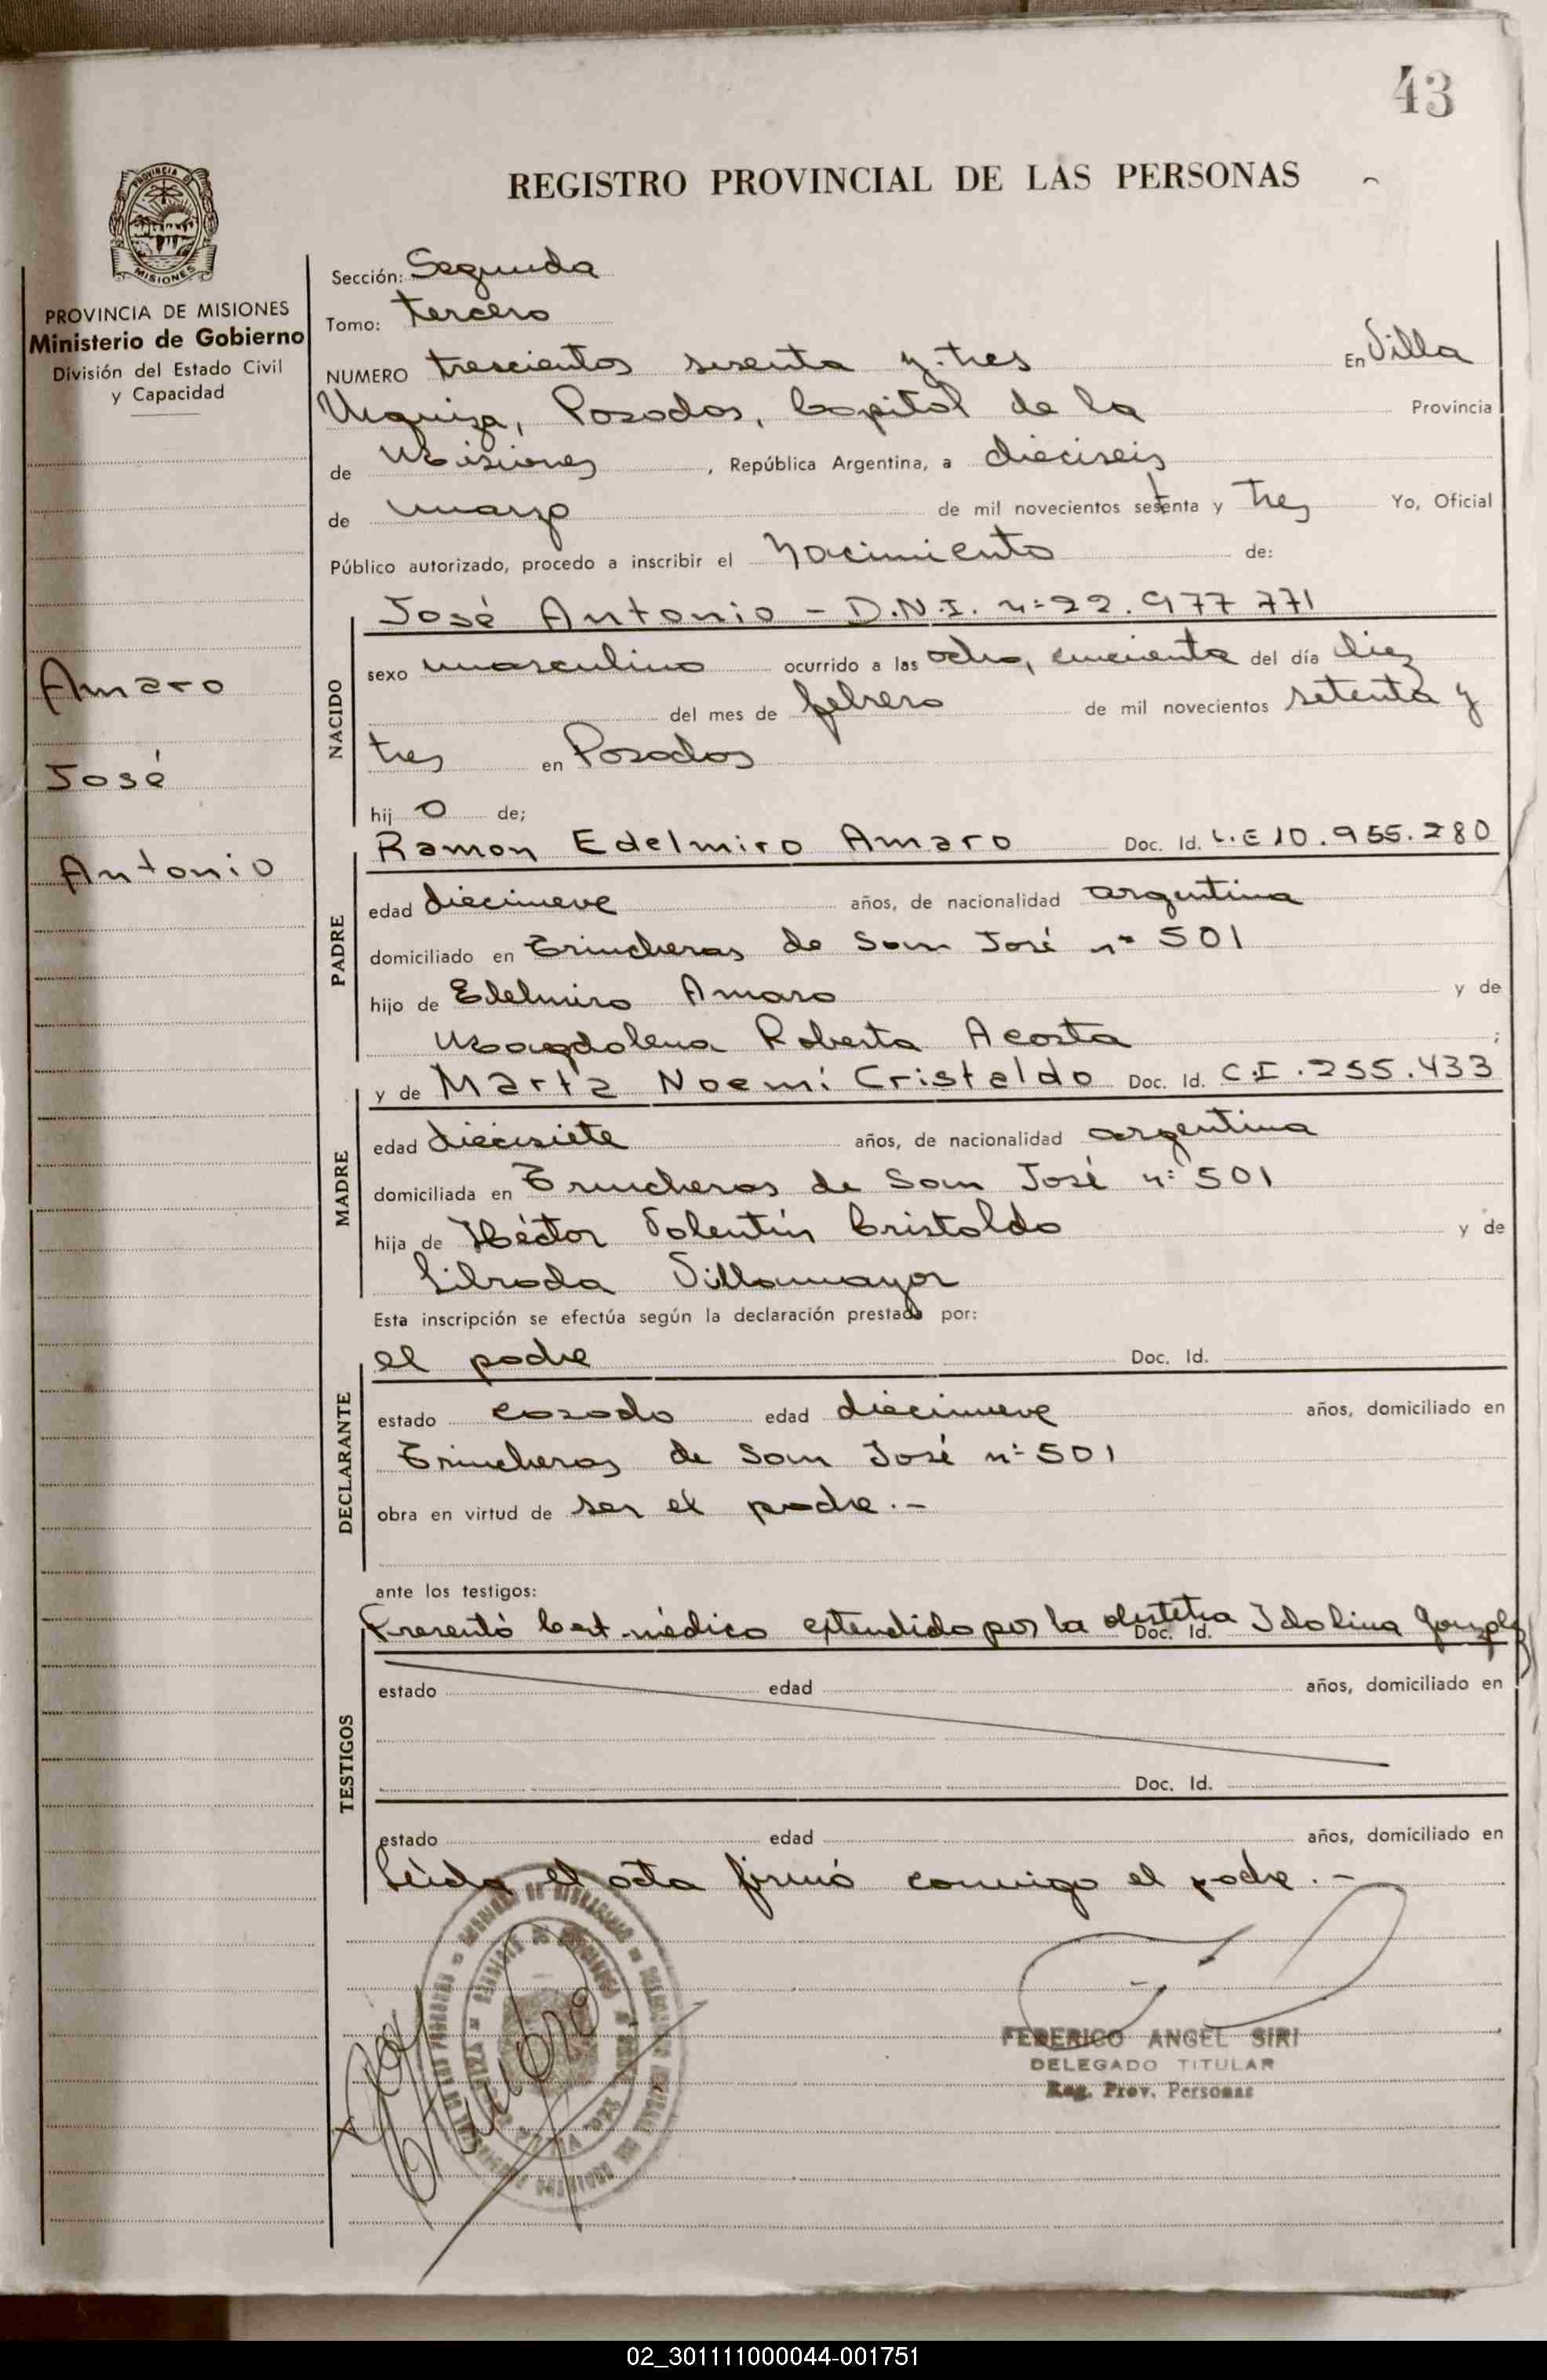 43
REGISTRO PROVINCIAL DE LAS PERSONAS
PROVINCIA DE MISIONES
Ministerio de Gobierno
División del Estado Civil
y Capacidad
Amaro
José
Antonio
Sección: Segunda
Tomo: tercero
NUMERO trescientos sesenta y tres En Villa
Urquiza, Posadas, Capital de la Provincia
de Misiones, República Argentina, a dieciseis
de marzo de mil novecientos setenta y tres Yo, Oficial
Público autorizado, procedo a inscribir el Nacimiento de:
NACIDO
José Antonio - D.N.I. nº 22.977 771
sexo masculino ocurrido a las ocho, cincuenta del día diez
del mes de febrero de mil novecientos setenta y
tres en Posadas
hij o de;
PADRE
Ramon Edelmiro Amaro Doc. Id. L.E 10.955.280
edad diecinueve años, de nacionalidad argentina
domiciliado en Trincheras de San José nº 501
hijo de Edelmiro Amaro y de
Magdalena Roberta Acosta ;
MADRE
y de Marta Noemí Cristaldo Doc. Id. C.I. 255.433
edad diecisiete años, de nacionalidad argentina
domiciliada en Trincheras de San José nº 501
hija de Héctor Valentín Cristaldo y de
Librada Villamayor
Esta inscripción se efectúa según la declaración prestada por:
DECLARANTE
el padre Doc. Id.
estado casado edad diecinueve años, domiciliado en
Trincheras de San José nº 501
obra en virtud de ser el padre.-
ante los testigos:
TESTIGOS
Presentó Cert. médico extendido por la obstetra Idolina González
Doc. Id.
estado edad años, domiciliado en
Doc. Id.
estado edad años, domiciliado en
Leída el acta firmó conmigo el padre.-
FEDERICO ANGEL SIRI
DELEGADO TITULAR
Reg. Prov. Personas
02_301111000044-001751